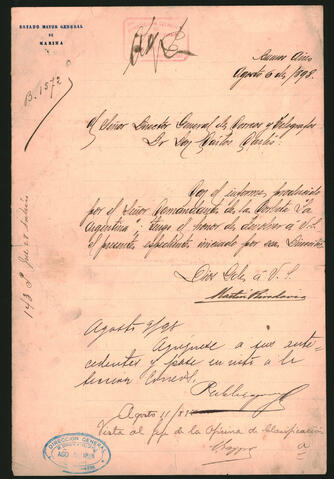 ESTADO MAYOR GENERAL
DE
MARINA
B. 1572
Buenos Aires
Agosto 6 de 1898.
Al Señor Director General de Correos y Telégrafos
Dr Don Carlos Carlés
Con el informe producido
por el Señor Comandante de la Corbeta "La
Argentina", tengo el honor de devolver á V.S.
el presente espediente iniciado por esa Dirección
Dios Gde. á V. S.
Martin Rivadavia
Agosto 9/98
Agréguese á sus ante-
cedentes y pase en vista á la
Agosto 11/98
Vista al Jefe de la Oficina de Clasificación
DIRECCION GENERAL
AGO